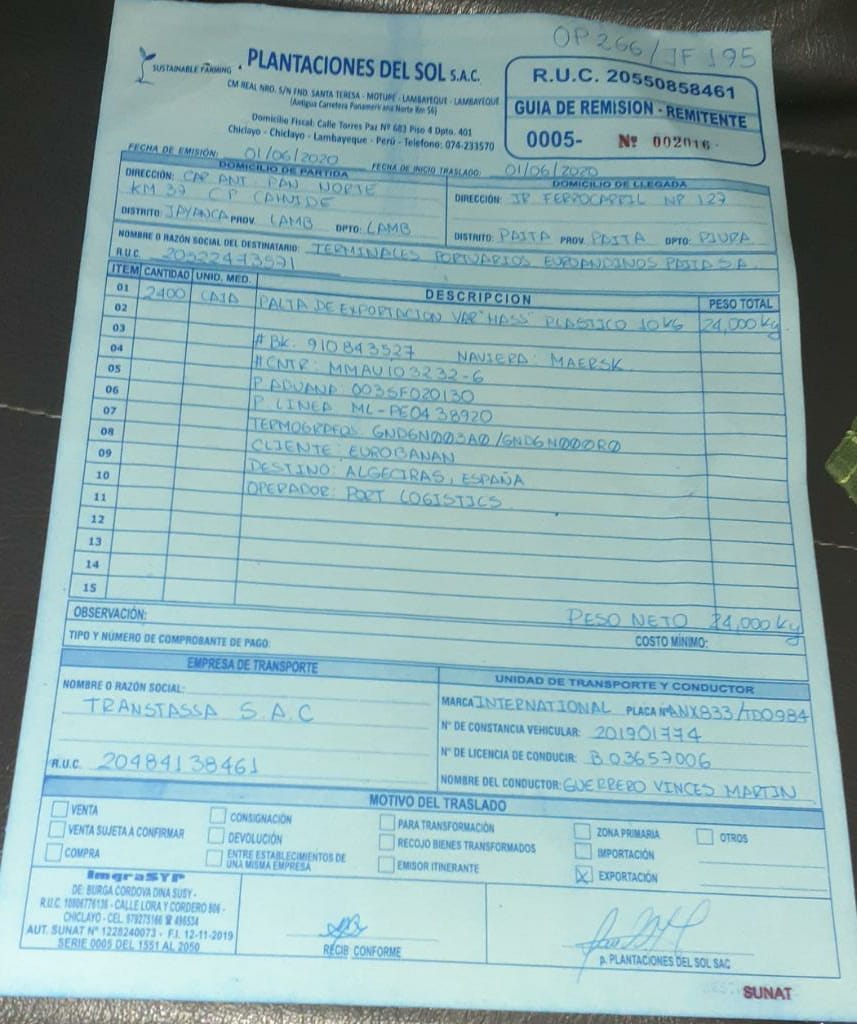 OP 266/JF 195
SUSTAINABLE FARMING
PLANTACIONES DEL SOL S.A.C.
CM REAL NRO. S/N FND. SANTA TERESA - MOTUPE - LAMBAYEQUE - LAMBAYEQUE
(Antigua Carretera Panamericana Norte Km 56)
Domicilio Fiscal: Calle Torres Paz Nº 683 Piso 4 Dpto. 401
Chiclayo - Chiclayo - Lambayeque - Perú - Telefono: 074-233570
R.U.C. 20550858461
GUIA DE REMISION - REMITENTE
0005- Nº 002016
FECHA DE EMISIÓN: 01/06/2020 FECHA DE INICIO TRASLADO: 01/06/2020
DOMICILIO DE PARTIDA
DIRECCIÓN: CAR ANT. PAN NORTE
KM 37 CP CAHUIDE
DISTRITO: JAYANCA PROV. LAMB DPTO: LAMB
DOMICILIO DE LLEGADA
DIRECCIÓN: JR FERROCARRIL Nº 127
DISTRITO: PAITA PROV. PAITA DPTO: PIURA
NOMBRE O RAZÓN SOCIAL DEL DESTINATARIO: TERMINALES PORTUARIOS EUROANDINOS PAITA S.A.
R.U.C. 20522473571
ITEM CANTIDAD UNID. MED. DESCRIPCION PESO TOTAL
01 2400 CAJA PALTA DE EXPORTACION VAR "HASS" PLASTICO 10KG 24,000 kg
02
03 # BK: 910843527 NAVIERA: MAERSK
04 # CNTR: MMAU103232-6
05 P. ADUANA: 003SF020130
06 P. LINEA ML-PE0438920
07 TERMOGRAFOS: GND6N003A0/GND6N000R0
08 CLIENTE: EUROBANAN
09 DESTINO: ALGECIRAS, ESPAÑA
10 OPERADOR: PORT LOGISTICS
11
12
13
14
15
OBSERVACIÓN: PESO NETO 24,000 kg
TIPO Y NÚMERO DE COMPROBANTE DE PAGO: COSTO MÍNIMO:
EMPRESA DE TRANSPORTE
NOMBRE O RAZÓN SOCIAL:
TRANSTASSA S.A.C
R.U.C. 20484138461
UNIDAD DE TRANSPORTE Y CONDUCTOR
MARCA INTERNATIONAL PLACA Nº ANX833/TDO984
N° DE CONSTANCIA VEHICULAR: 201901774
N° DE LICENCIA DE CONDUCIR: B03657006
NOMBRE DEL CONDUCTOR: GUERRERO VINCES MARTIN
MOTIVO DEL TRASLADO
VENTA
VENTA SUJETA A CONFIRMAR
COMPRA
CONSIGNACIÓN
DEVOLUCIÓN
ENTRE ESTABLECIMIENTOS DE
UNA MISMA EMPRESA
PARA TRANSFORMACIÓN
RECOJO BIENES TRANSFORMADOS
EMISOR ITINERANTE
ZONA PRIMARIA
IMPORTACIÓN
X EXPORTACIÓN
OTROS
ImgraSYP
DE: BURGA CORDOVA DINA SUSY -
R.U.C. 10806776136 - CALLE LORA Y CORDERO 806 -
CHICLAYO - CEL. 979275166 ☎ 496534
AUT. SUNAT N° 1228240073 - F.I. 12-11-2019
SERIE 0005 DEL 1551 AL 2050
RECIB CONFORME
p. PLANTACIONES DEL SOL SAC
SUNAT